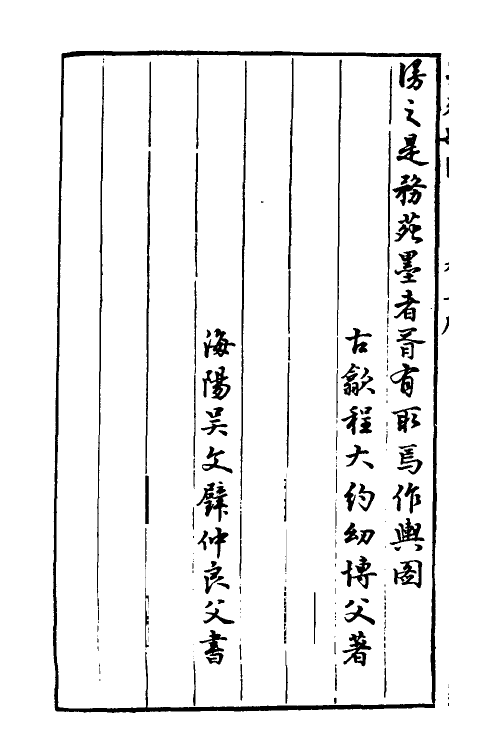 得之是務苑墨者胥有取焉作輿圖
古歙程大約幼博父著
海陽吳文甓仲良父書